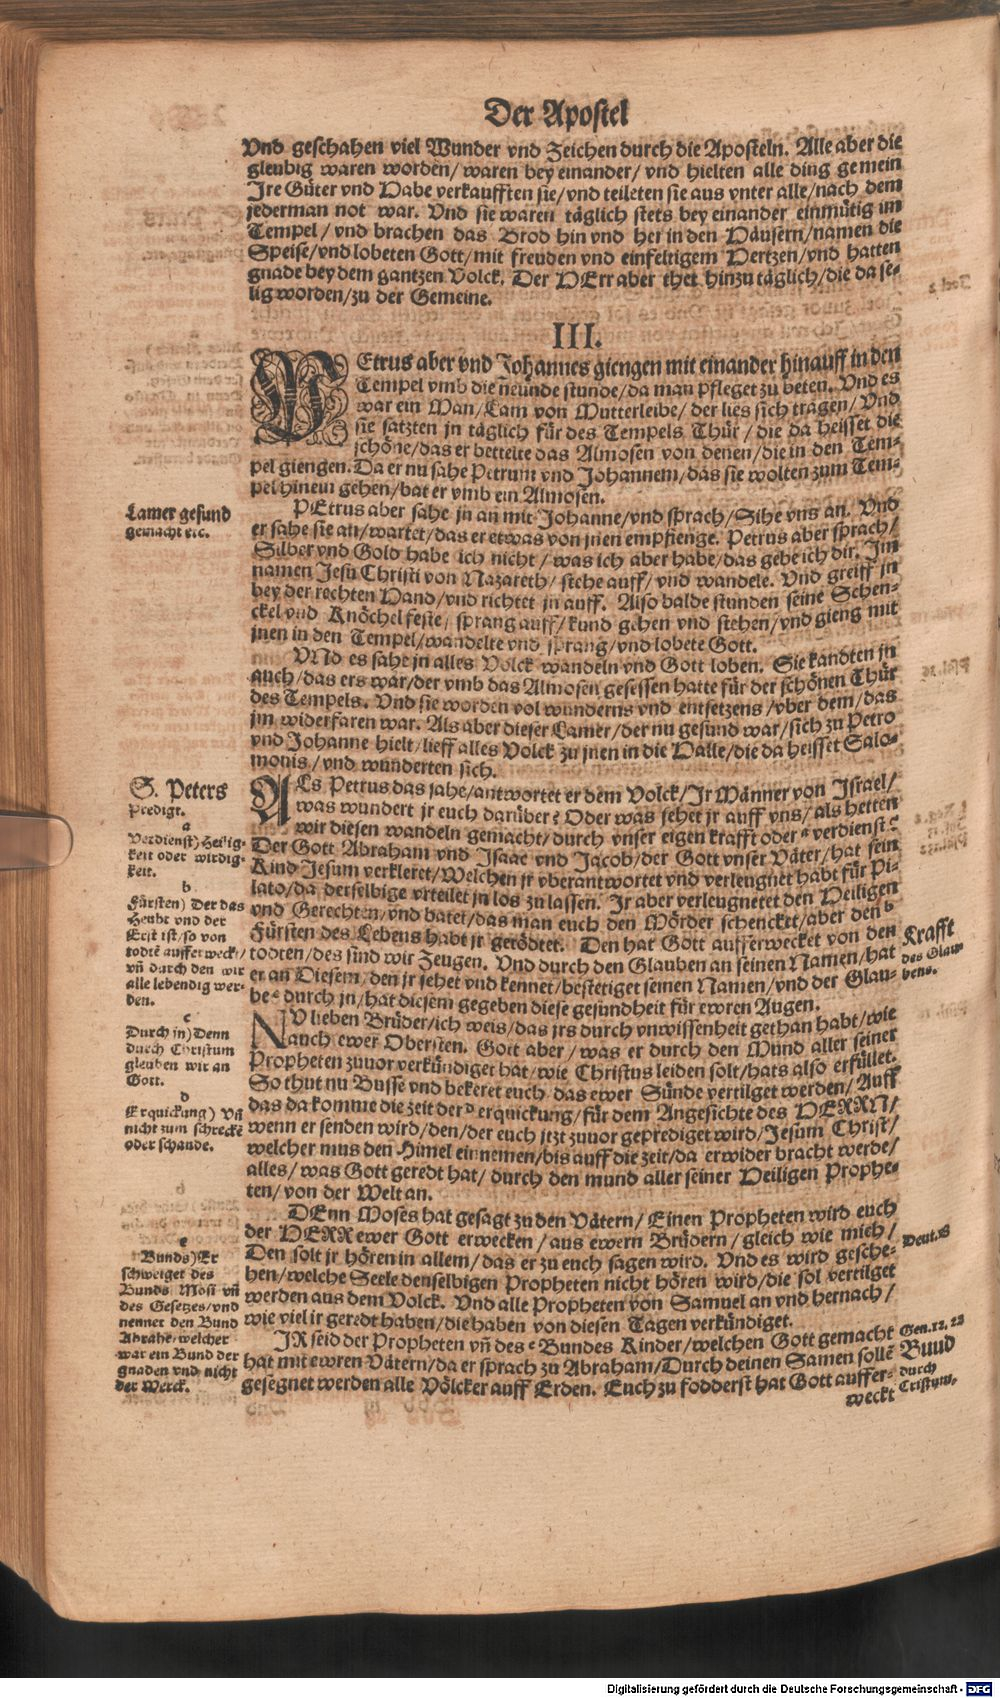 Der Apostel
Vnd geschahen viel Wunder vnd Zeichen durch die Aposteln. Alle aber die
gleubig waren worden/ waren bey einander/ vnd hielten alle ding gemein
Ire Güter vnd Habe verkaufften sie/ vnd teileten sie aus vnter alle/ nach dem
jederman not war. Vnd sie waren täglich stets bey einander einmütig im
Tempel/ vnd brachen das Brod hin vnd her in den Häusern/ namen die
Speise/ vnd lobeten Gott/ mit freuden vnd einfeltigem Hertzen/ vnd hatten
gnade bey dem gantzen Volck. Der HErr aber thet hinzu täglich/ die da se-
lig worden/ zu der Gemeine.
III.
PEtrus aber vnd Johannes giengen mit einander hinauff in den
Tempel vmb die neunde stunde/ da man pfleget zu beten. Vnd es
war ein Man/ Lam von Mutterleibe/ der lies sich tragen/ Vnd
sie satzten jn täglich für des Tempels Thür/ die da heisset die
schöne/ das er bettelte das Almosen von denen/ die in den Tem-
pel giengen. Da er nu sahe Petrum vnd Johannem/ das sie wolten zum Tem-
pel hinein gehen/ bat er vmb ein Almosen.
Lamer gesund
gemacht etc.
PEtrus aber sahe jn an mit Johanne/ vnd sprach/ Sihe vns an. Vnd
er sahe sie an/ wartet/ das er etwas von jnen empfienge. Petrus aber sprach/
Silber vnd Gold habe ich nicht/ was ich aber habe/ das gebe ich dir. Im
namen Jesu Christi von Nazareth/ stehe auff/ vnd wandele. Vnd greiff jn
bey der rechten Hand/ vnd richtet jn auff. Also balde stunden seine Schen-
ckel vnd Knöchel feste/ sprang auff/ kund gehen vnd stehen/ vnd gieng mit
jnen in den Tempel/ wandelte vnd sprang/ vnd lobete Gott.
VNd es sahe jn alles Volck wandeln vnd Gott loben. Sie kandten jn
auch/ das ers war/ der vmb das Almosen gesessen hatte für der schönen Thür
des Tempels. Vnd sie worden vol wunderns vnd entsetzens/ vber dem/ das
jm widerfaren war. Als aber dieser Lamer/ der nu gesund war/ sich zu Petro
vnd Johanne hielt/ lieff alles Volck zu jnen in die Halle/ die da heisset Salo-
monis/ vnd wunderten sich.
S. Peters
Predigt.
a
Verdienst) Heilig-
keit oder wirdig-
keit.
b
Fürsten) Der das
Heubt vnd der
Erst ist/ so von
todtē aufferweckt/
vñ durch den wir
alle lebendig wer-
den.
c
Durch jn) Denn
durch Christum
gleuben wir an
Gott.
d
Erquickung) Vñ
nicht zum schreckē
oder schande.
ALs Petrus das sahe/ antwortet er dem Volck/ Ir Männer von Israel/
was wundert jr euch darüber? Oder was sehet jr auff vns/ als hetten
wir diesen wandeln gemacht/ durch vnser eigen krafft oder a verdienst?
Der Gott Abraham vnd Isaac vnd Jacob/ der Gott vnser Väter/ hat sein
Kind Jesum verkleret/ Welchen jr vberantwortet vnd verleugnet habt für Pi-
lato/ da derselbige vrteilet jn los zu lassen. Ir aber verleugnetet den Heiligen
vnd Gerechten/ vnd batet/ das man euch den Mörder schenckt/ aber den b
Fürsten des Lebens habt jr getödtet. Den hat Gott aufferwecket von den
todten/ des sind wir Zeugen. Vnd durch den Glauben an seinen Namen/ hat
er an Diesem/ den jr sehet vnd kennet/ bestetiget seinen Namen/ vnd der Glau-
be c durch jn/ hat diesem gegeben diese gesundheit für ewren Augen.
Krafft
des Glau-
bens.
NV lieben Brüder/ ich weis/ das jrs durch vnwissenheit gethan habt/ wie
auch ewer Obersten. Gott aber/ was er durch den Mund aller seiner
Propheten zuuor verkündiget hat/ wie Christus leiden solt/ hats also erfüllet.
So thut nu Busse vnd bekeret euch/ das ewer Sünde vertilget werden/ Auff
das da komme die zeit der d erquickung/ für dem Angesichte des HERRN/
wenn er senden wird/ den/ der euch jtzt zuuor geprediget wird/ Jesum Christ/
welcher mus den Himel einnemen/ bis auff die zeit/ da erwider bracht werde/
alles/ was Gott geredt hat/ durch den mund aller seiner Heiligen Prophe-
ten/ von der Welt an.
DEnn Moses hat gesagt zu den Vätern/ Einen Propheten wird euch
der HERR ewer Gott erwecken/ aus ewern Brüdern/ gleich wie mich/
Den solt jr hören in allem/ das er zu euch sagen wird. Vnd es wird gesche-
hen/ welche Seele denselbigen Propheten nicht hören wird/ die sol vertilget
werden aus dem Volck. Vnd alle Propheten von Samuel an vnd hernach/
wie viel ir geredt haben/ die haben von diesen Tagen verkündiget.
Deut. 18
e
Bunds) Er
schweiget des
Bunds Mosi vñ
des Gesetzes/ vnd
nennet den Bund
Abrahe/ welcher
war ein Bund der
gnaden vnd nicht
der Werck.
IR seid der Propheten vñ des e Bundes Kinder/ welchen Gott gemacht
hat mit ewren Vätern/ da er sprach zu Abraham/ Durch deinen Samen sollē
gesegnet werden alle Völcker auff Erden. Euch zu fodderst hat Gott auffer-
weckt
Gen. 12. 22
Bund
durch
Cristum.
Digitalisierung gefördert durch die Deutsche Forschungsgemeinschaft - DFG